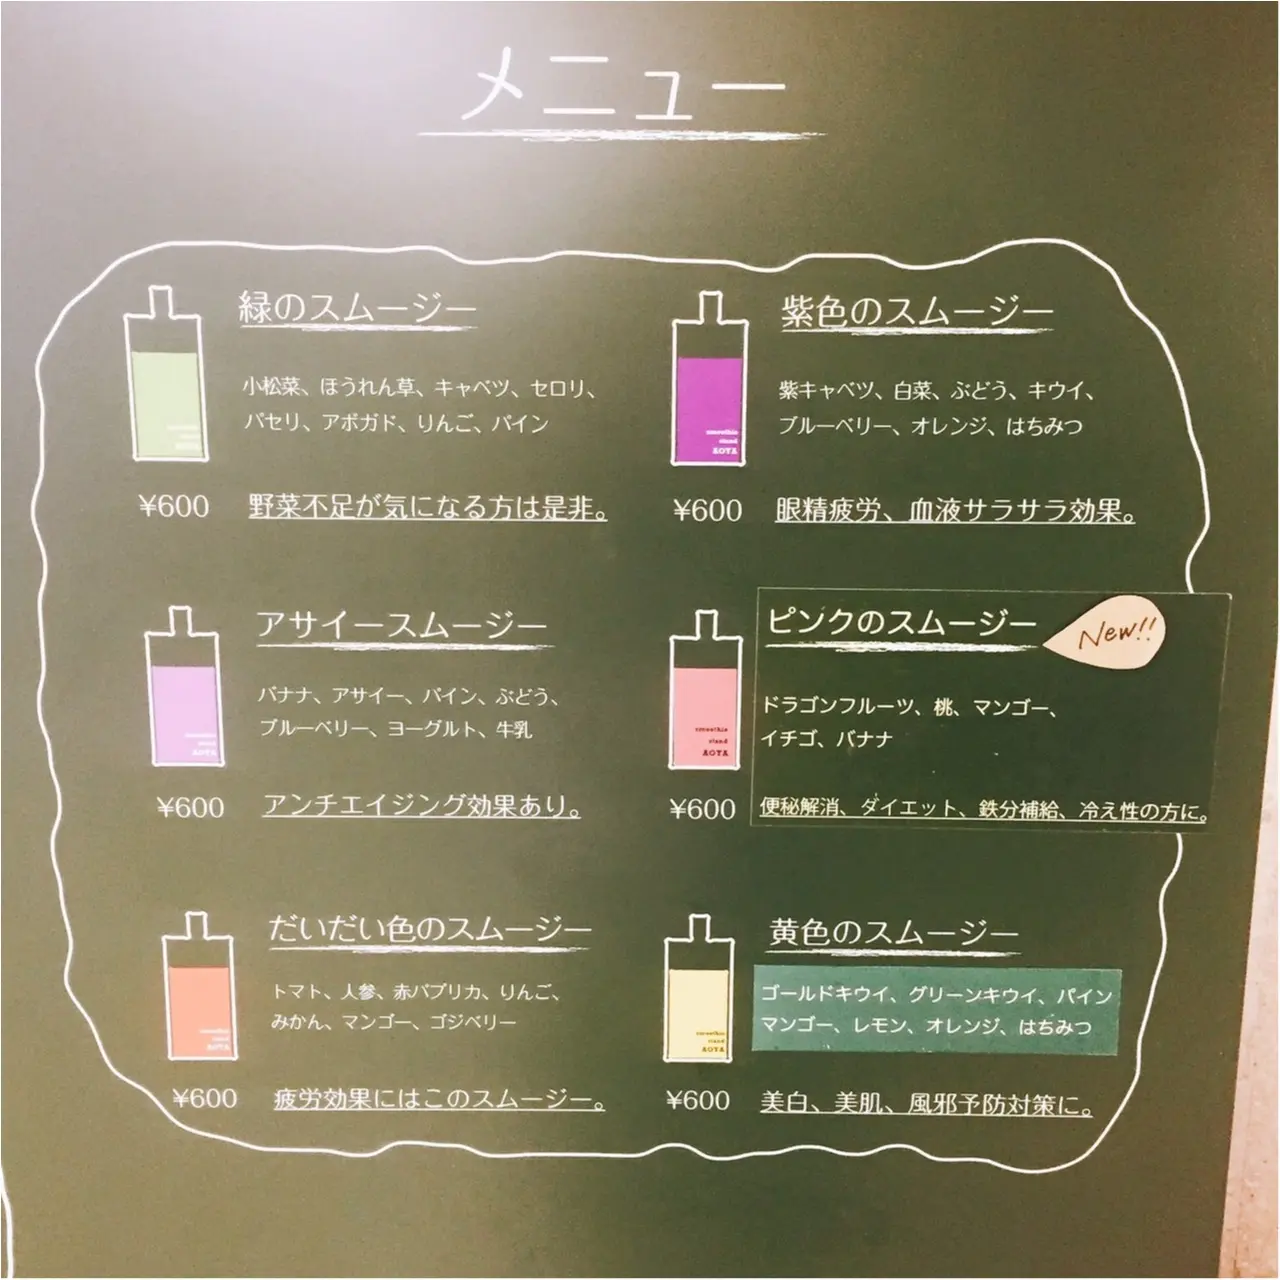 メニュー
緑のスムージー
小松菜、ほうれん草、キャベツ、セロリ、
パセリ、アボガド、りんご、パイン
¥600
野菜不足が気になる方は是非。
紫色のスムージー
紫キャベツ、白菜、ぶどう、キウイ、
ブルーベリー、オレンジ、はちみつ
smoothie
stand
AOYA
¥600
眼精疲労、血液サラサラ効果。
アサイースムージー
バナナ、アサイー、パイン、ぶどう、
ブルーベリー、ヨーグルト、牛乳
smoothie
stand
AOYA
¥600
アンチエイジング効果あり。
ピンクのスムージー
New!!
ドラゴンフルーツ、桃、マンゴー、
イチゴ、バナナ
smoothie
stand
AOYA
¥600
便秘解消、ダイエット、鉄分補給、冷え性の方に。
だいだい色のスムージー
トマト、人参、赤パプリカ、りんご、
みかん、マンゴー、ゴジベリー
smoothie
stand
AOYA
¥600
疲労効果にはこのスムージー。
黄色のスムージー
ゴールドキウイ、グリーンキウイ、パイン
マンゴー、レモン、オレンジ、はちみつ
smoothie
stand
AOYA
¥600
美白、美肌、風邪予防対策に。